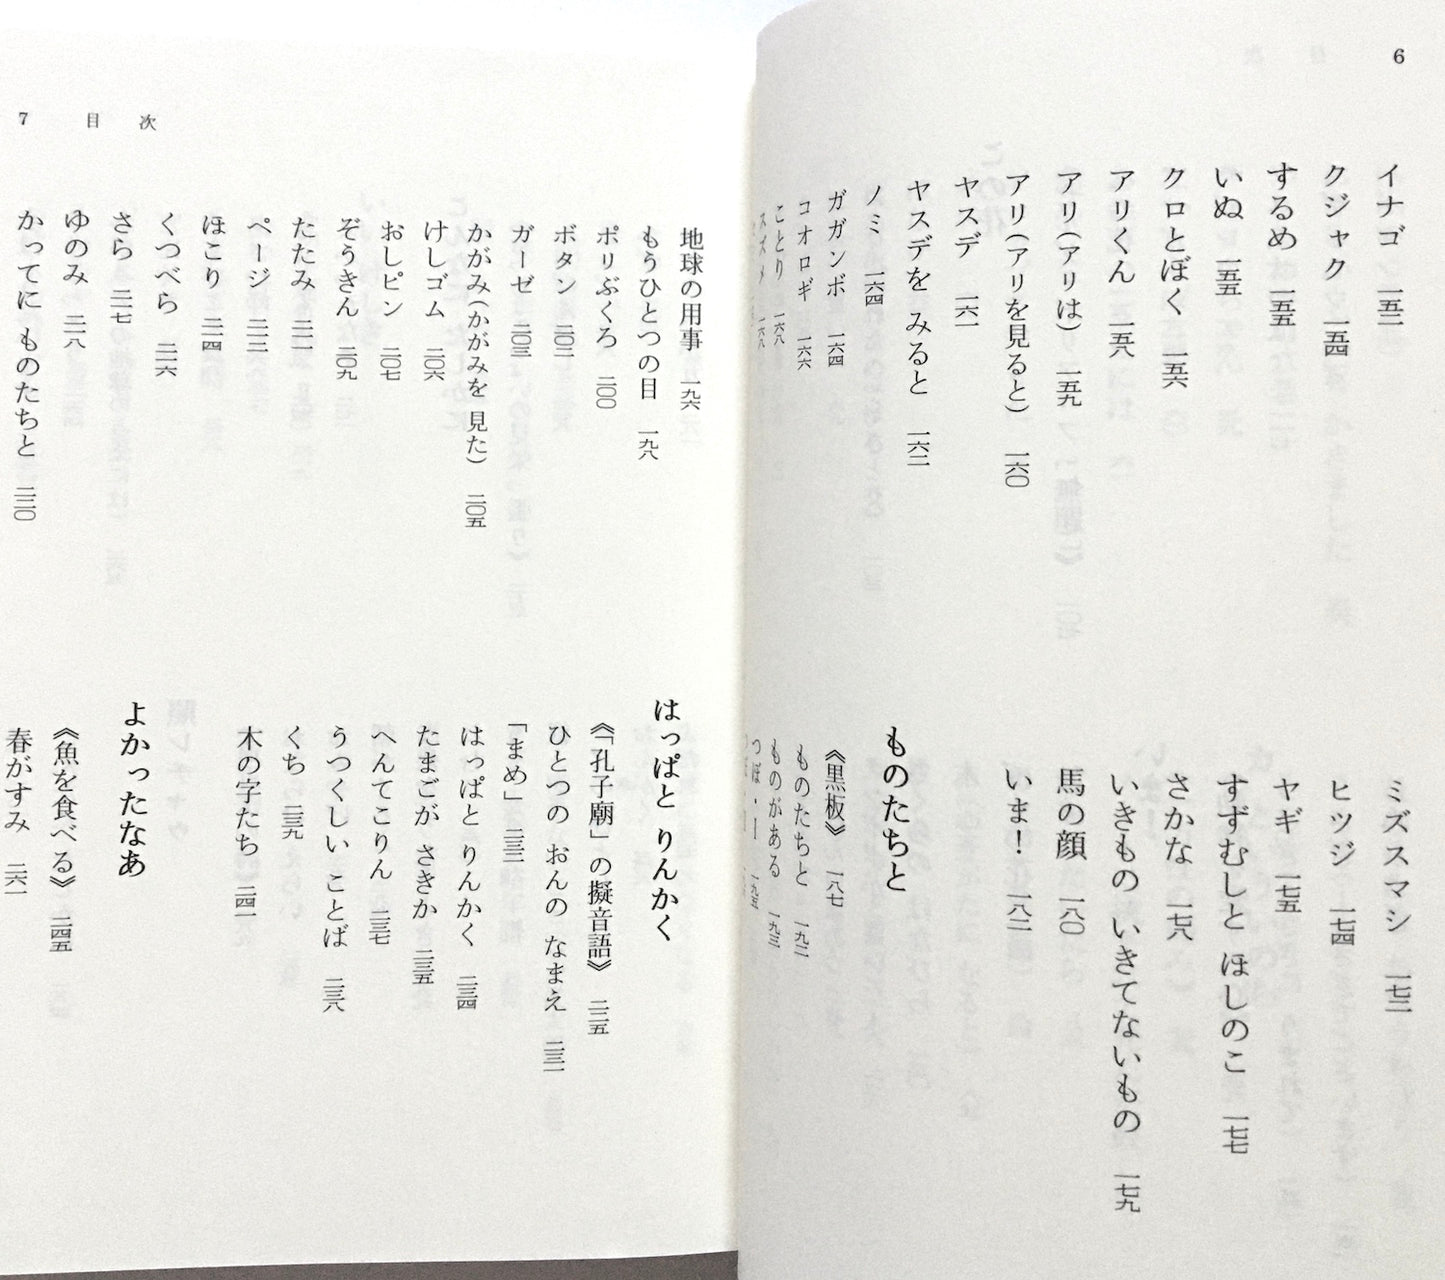 6
イナゴ 一五二
クジャク 一五四
するめ 一五五
いぬ 一五五
クロとぼく 一五六
アリくん 一五八
アリ(アリは) 一五九
アリ(アリを見ると) 一六〇
ヤスデ 一六一
ヤスデを みると 一六二
ノミ 一六四
ガガンボ 一六四
コオロギ 一六六
ことり 一六八
スズメ 一六八
ミズスマシ 一七二
ヒツジ 一七四
ヤギ 一七五
すずむしと ほしのこ 一七七
さかな 一七八
いきもの いきてないもの 一七九
馬の顔 一八〇
いま！ 一八二
ものたちと
《黒板》 一八七
ものたちと 一九二
ものがある 一九三
つぼ・Ⅰ 一九五
7 目次
地球の用事 一九六
もうひとつの目 一九八
ポリぶくろ 二〇〇
ボタン 二〇二
ガーゼ 二〇三
かがみ(かがみを 見た) 二〇五
けしゴム 二〇六
おしピン 二〇七
ぞうきん 二〇九
たたみ 二一一
ページ 二一二
ほこり 二一四
くつべら 二一六
さら 二一七
ゆのみ 二一八
かってに ものたちと 二二〇
はっぱと りんかく
《「孔子廟」の擬音語》 二二五
ひとつの おんの なまえ 二三一
「まめ」 二三三
はっぱと りんかく 二三四
たまごが さきか 二三五
へんてこりん 二三七
うつくしい ことば 二三八
くち 二三九
木の字たち 二四一
よかったなあ
《魚を食べる》 二四五
春がすみ 二六一